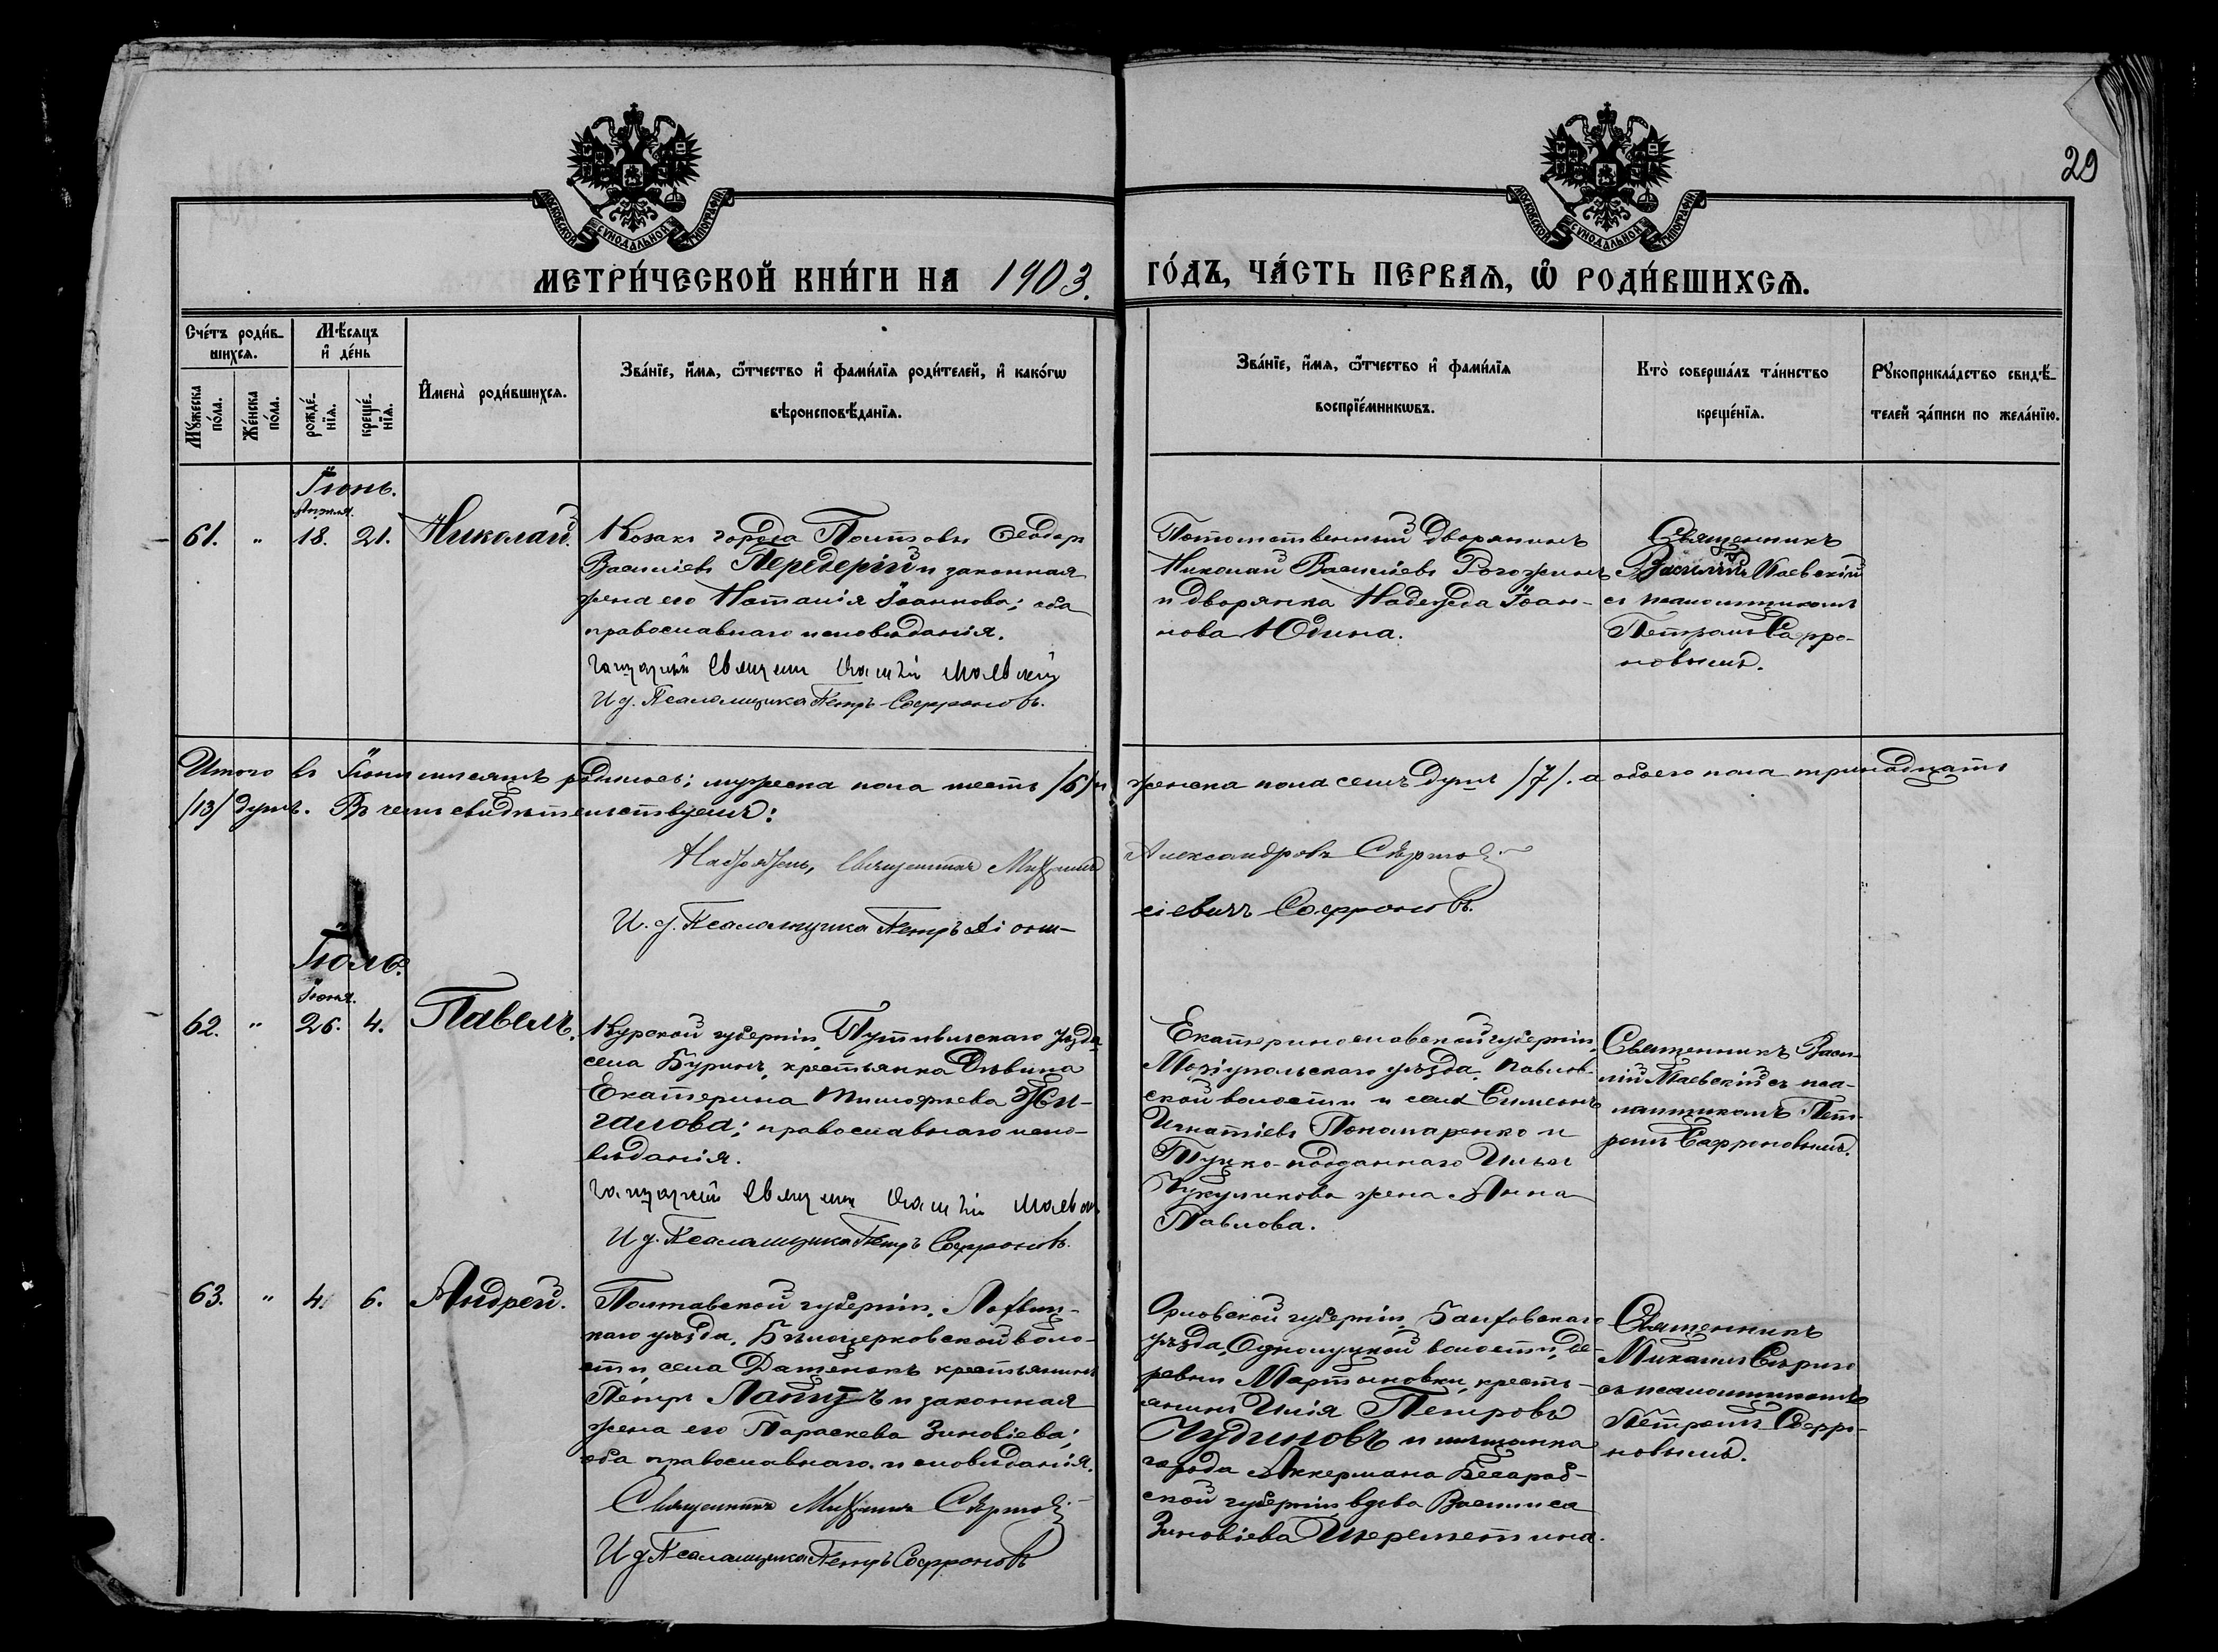 29
МОСКОВСКОЙ СѴНОДАЛЬНОЙ ТИПОГРАФІИ
МОСКОВСКОЙ СѴНОДАЛЬНОЙ ТИПОГРАФІИ
МЕТРИ́ЧЕСКОЙ КНИ́ГИ НА 1903. ГО́ДЪ, ЧА́СТЬ ПЕРВАѦ, Ѽ РОДИ́ВШИХСѦ.
Сче́тъ роди́в-
шихсѧ.
Мѣ́сѧцъ
и҆ де́нь
Мꙋ́жеска
по́ла.
Же́нска
по́ла.
рожде́-
нїѧ.
креще́-
нїѧ.
И҆мена̀ роди́вшихсѧ.
Зва́нїе, и҆́мѧ, ѻ҆́тчество и҆ фами́лїѧ роди́телей, и҆ како́гѡ
вѣроисповѣ́данїѧ.
Зва́нїе, и҆́мѧ, ѻ҆́тчество и҆ фами́лїѧ
воспрїе́мникѡвъ.
Кто̀ соверша́лъ та́инство
креще́нїѧ.
Рꙋкоприкла́дство свидѣ́-
телей за́писи по жела́нїю.
Іюнь.
Апреля.
61. " 18. 21. Николай.
Козакъ города Полтавы Ѳеодоръ
Васильевъ Передерій и законная
жена его Наталія Іоаннова; оба
православнаго исповѣданія.
Священникъ Василій Маевскій
И. д. Псаломщика Петръ Софроновъ.
Потомственный дворянинъ
Николай Васильевъ Рогожинъ
и дворянка Надежда Іоан-
нова Юдина.
Священникъ
Василій Маевскій
съ псаломщикомъ
Петромъ Софро-
новымъ.
Итого въ Іюнѣ мѣсяцѣ родилось: мужеска пола шесть /6/ и женска пола семь душъ /7/. а обоего пола тринадцать
/13/ душъ. Въ чемъ свидѣтельствуемъ:
Священникъ Михаилъ Александровъ
И. д. Псаломщика Петръ Діони- сіевичъ Софроновъ.
Іюль.
Іюня.
62. " 26. 4. Павелъ.
Курской губерніи, Путивльскаго уѣзда,
села Бурынь, крестьянка дѣвица
Екатерина Тимофѣева Жи-
галова; православнаго испо-
вѣданія.
Священникъ Василій Маевскій
И. д. Псаломщика Петръ Софроновъ.
Екатеринославской губерніи,
Маріупольскаго уѣзда, Павлов-
ской волости и села Симеонъ
Игнатіевъ Пономаренко и
Турко-подданнаго Ильи
жена Анна
Павлова.
Священникъ Васи-
лій Маевскій съ пса-
ломщикомъ Пет-
ромъ Софроновымъ.
63. " 4. 6. Андрей.
Полтавской губерніи, Лохвиц-
каго уѣзда, Бѣлоцерковской воло-
сти, села Даценокъ крестьянинъ
Петръ и законная
жена его Параскева Зиновіева;
оба православнаго исповѣданія.
Священникъ Михаилъ
И. д. Псаломщика Петръ Софроновъ
Орловской губерніи, Болховскаго
уѣзда, Однолуцкой волости, де-
ревни Мартыновки, кресть-
янинъ Илія Петровъ
Чудиновъ и мѣщанка
города Аккермана Бесараб-
ской губерніи вдова Василиса
Зиновіева Шереметина.
Священникъ
Михаилъ
съ псаломщикомъ
Петромъ Софро-
новымъ.